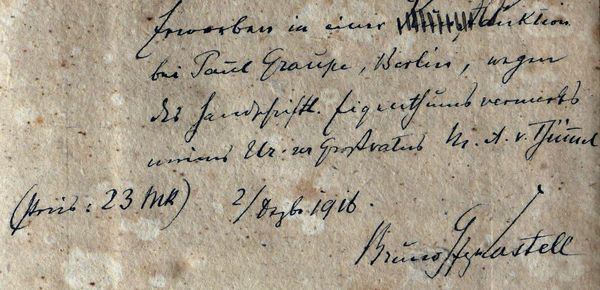 Erworben in einer Auktion
bei Paul Graupe, Berlin, wegen
des handschriftl. Eigenthumsvermerks
meines Ur-ur Großvaters M. A. v. Thümmel
(Preis: 23 MK) 2/Dezbr 1916.
Bruno